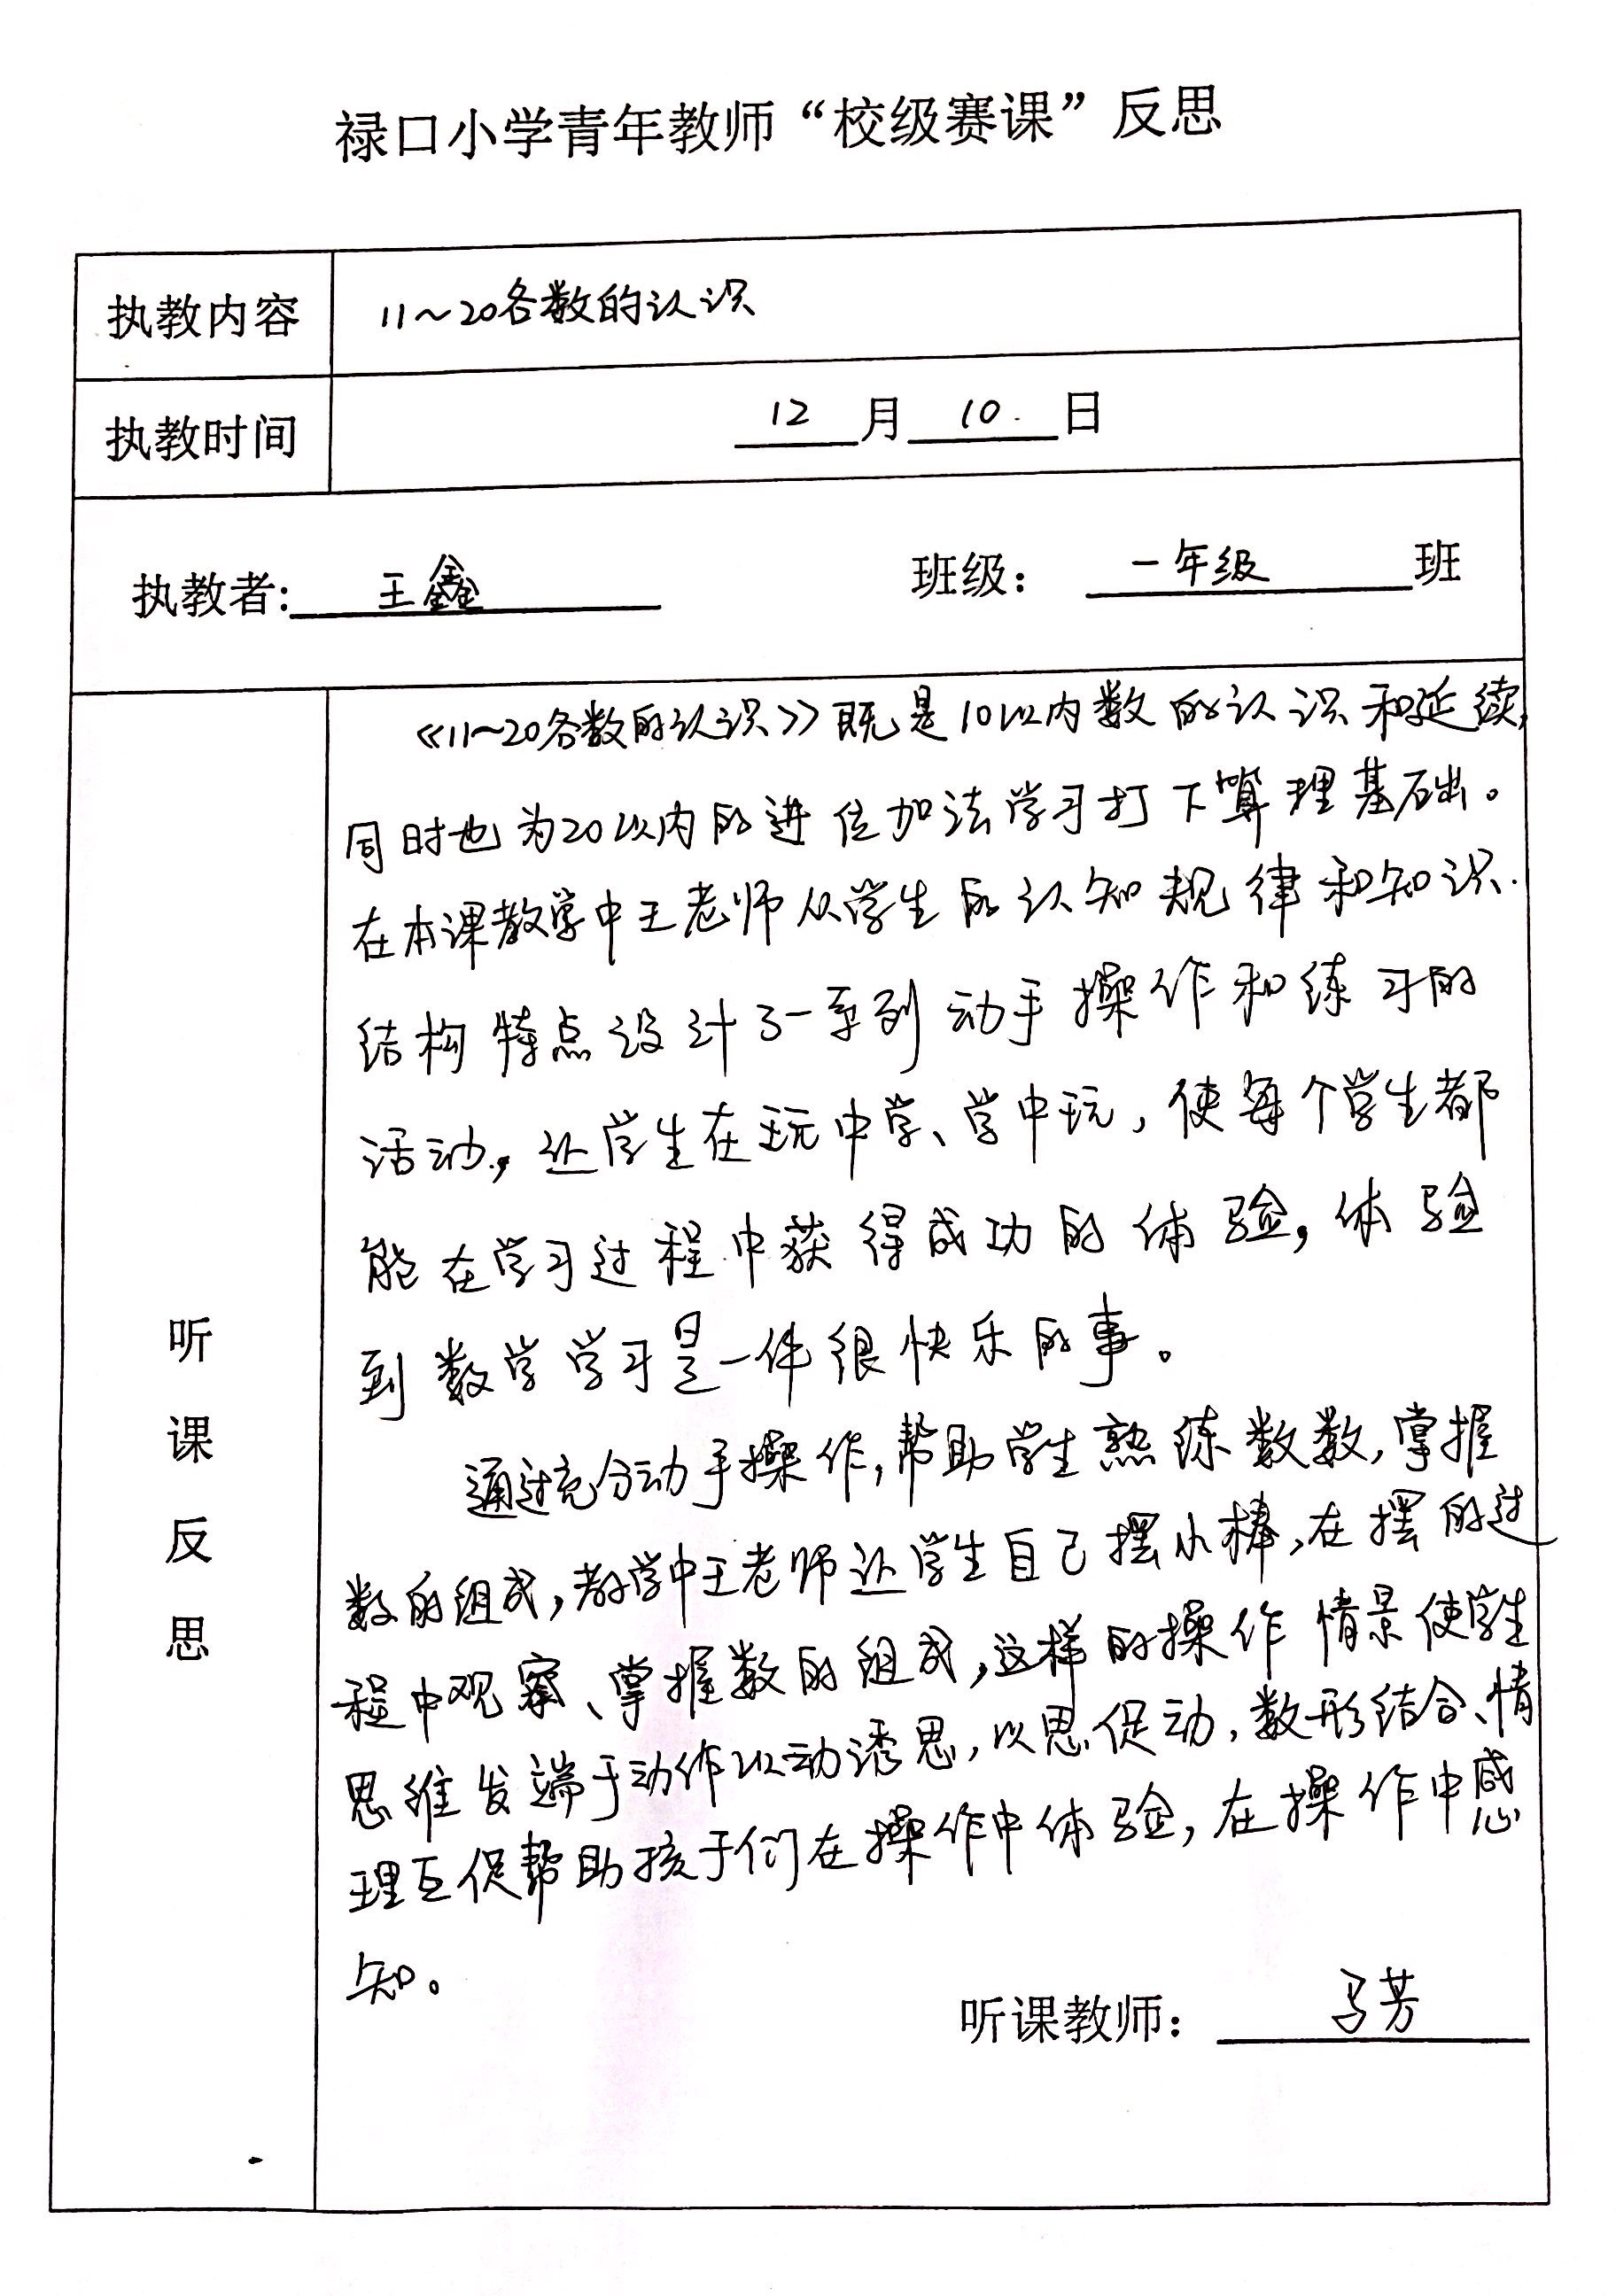 禄口小学青年教师“校级赛课”反思
执教内容 11~20各数的认识
执教时间 12月10日
执教者: 王鑫 班级: 一年级班
《11~20各数的认识》既是10以内数的认识和延续,
同时也为20以内的进位加法学习打下算理基础。
在本课教学中王老师从学生的认知规律和知识
结构特点设计了一系列动手操作和练习的
活动,让学生在玩中学、学中玩,使每个学生都
能在学习过程中获得成功的体验,体验
到数学学习是一件很快乐的事。
通过充分动手操作,帮助学生熟练数数,掌握
数的组成,教学中王老师让学生自己摆小棒,在摆的过
程中观察、掌握数的组成,这样的操作情景使学生
思维发端于动作以动诱思,以思促动,数形结合、情
理互促帮助孩子们在操作中体验,在操作中感
知。
听课反思
听课教师: 马芳